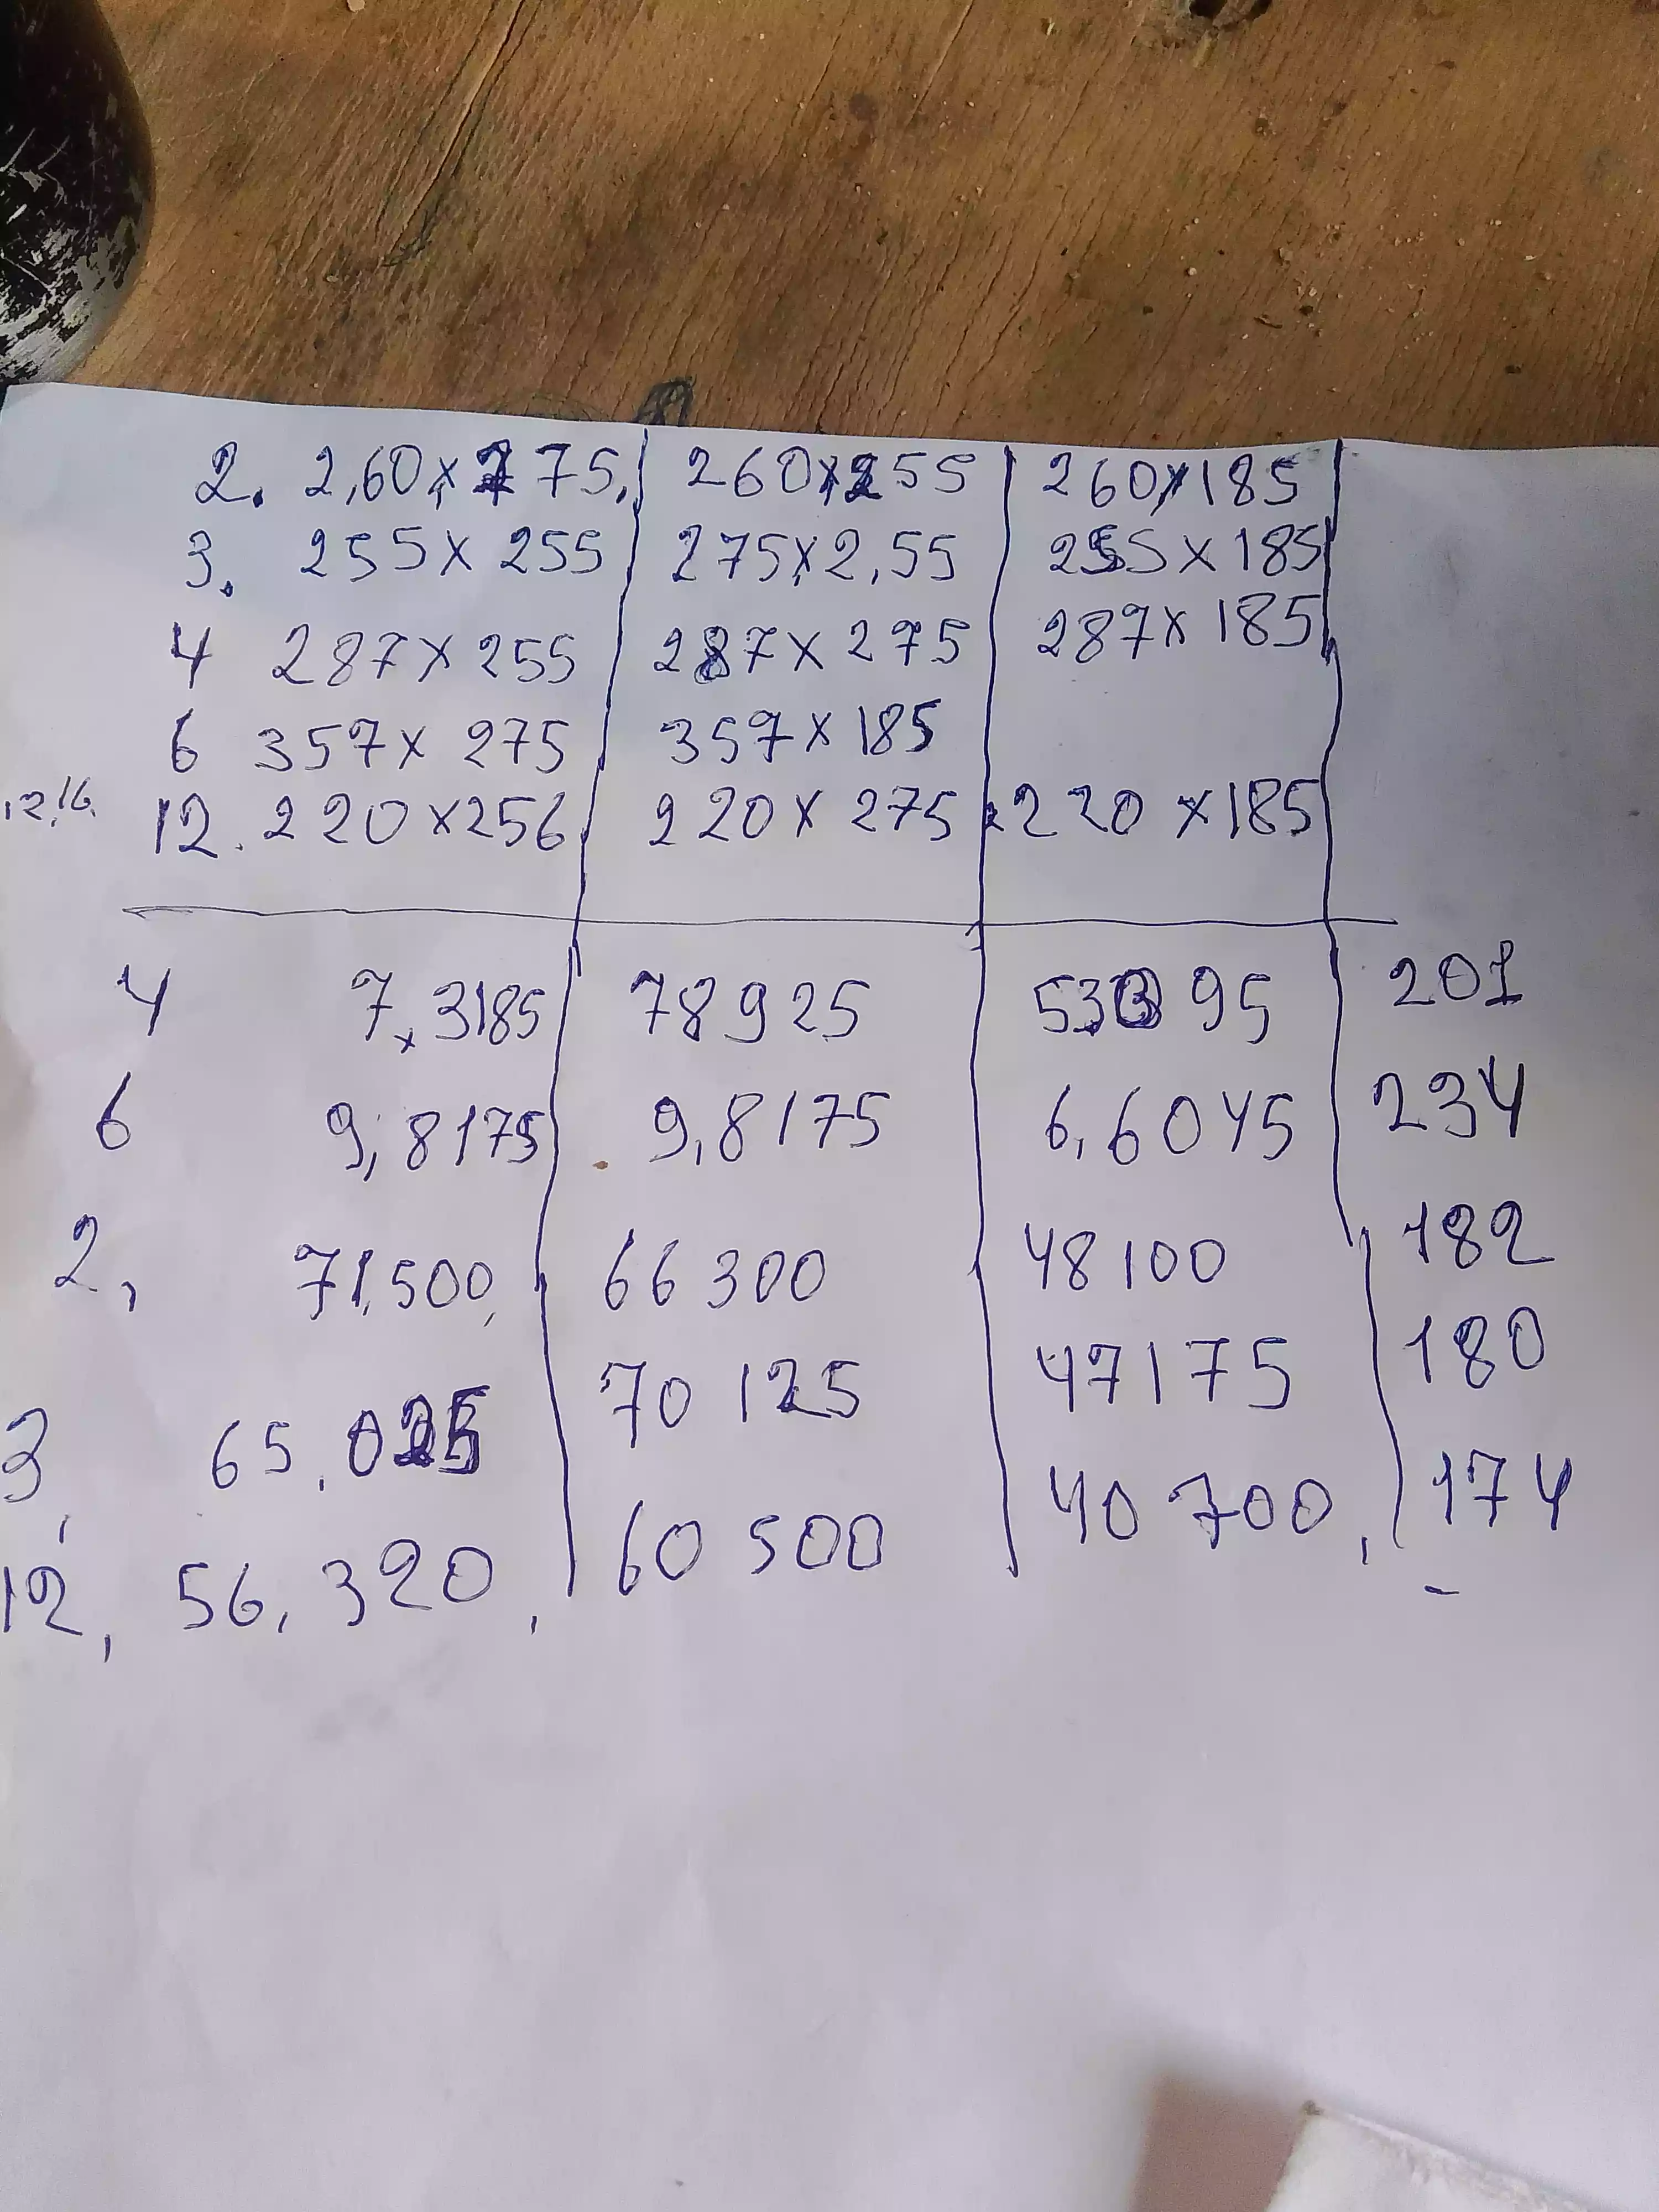 2. 2,60x275. 260x255 260x185
3. 255x255 275x2,55 255x185
4 287x255 287x275 287x185
6 357x275 357x185
12,16. 12. 220x256. 220x275 220x185
4 7,3185 78925 53395 201
6 9,8175 9,8175 6,6045 234
2, 71,500, 66300 48100 182
3, 65,025 70125 47175 180
12, 56,320, 60500 40700, 174